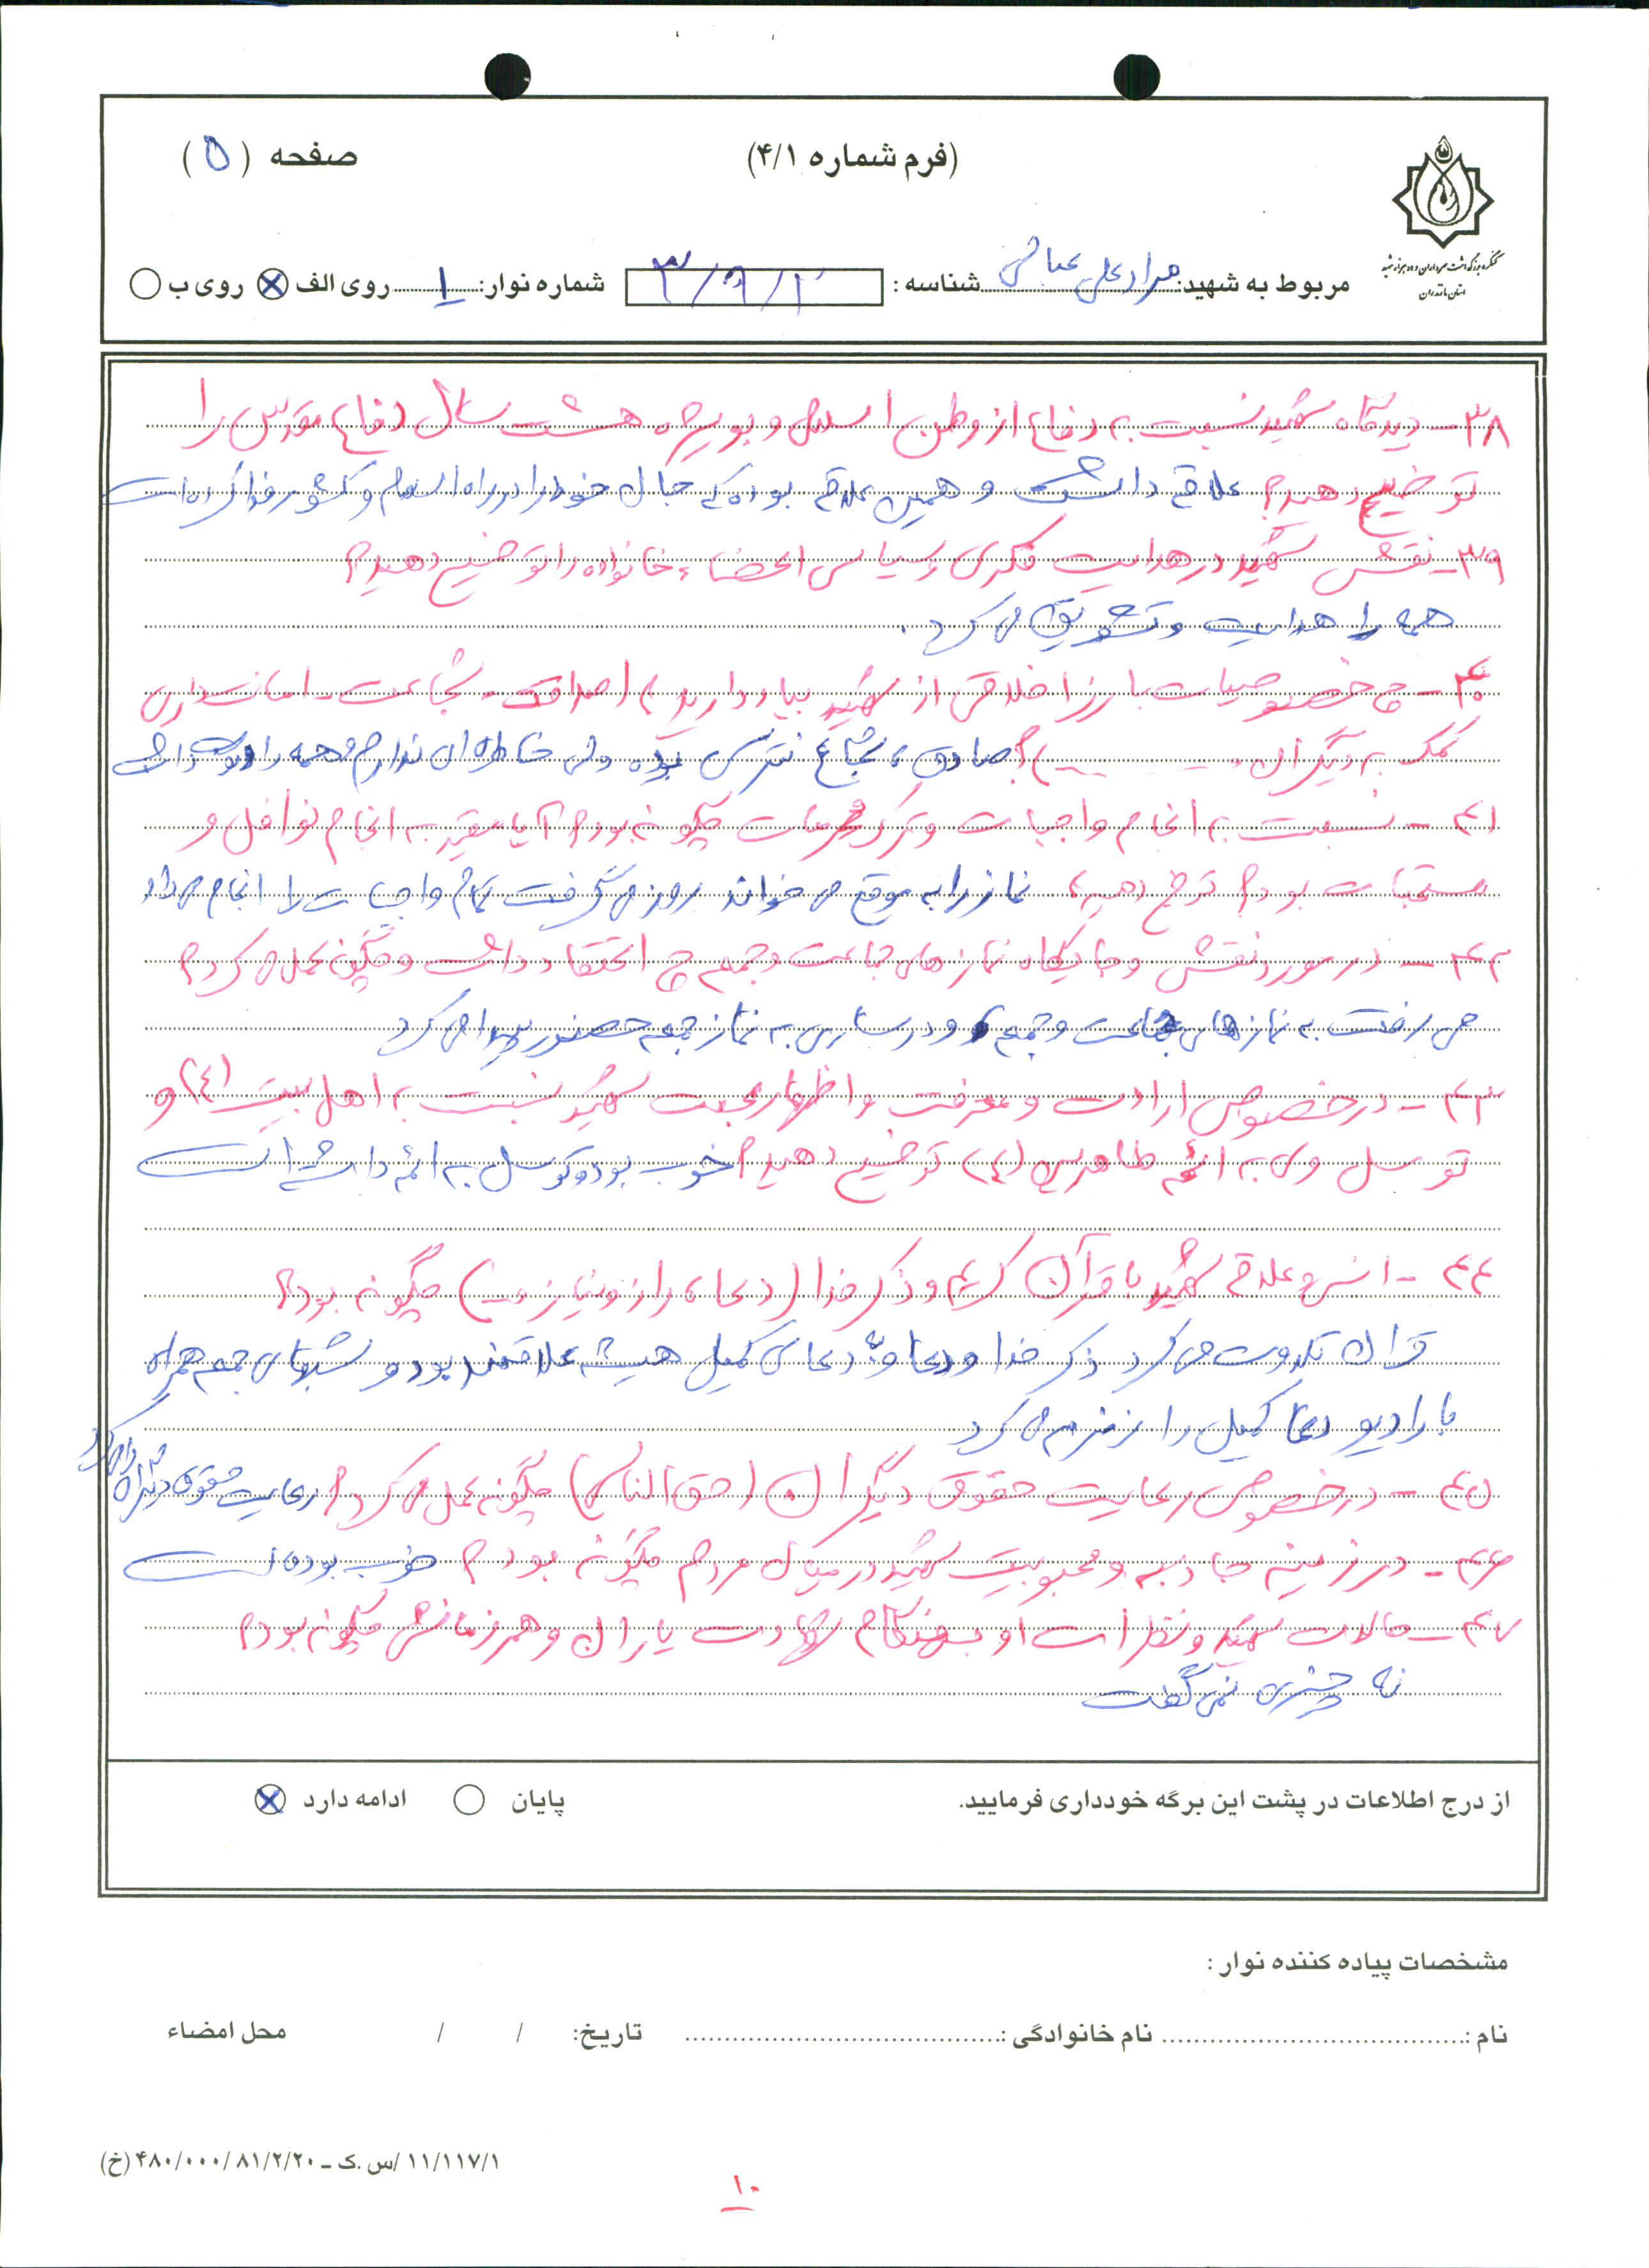 (فرم شماره ۴/۱)
صفحه (۵)
کنگره بزرگداشت سرداران و ده هزار شهید
استان مازندران
مربوط به شهید: مرادعلی عباسی شناسه : شماره نوار: ۱ روی الف روی ب
۳۸- دیدگاه شهید نسبت به دفاع از وطن اسلامی و بویژه هشت سال دفاع مقدس را
توضیح دهید؟ علاقه داشت و همین علاقه بوده که جان خود را در راه اسلام و کشور فدا کرده است
۳۹- نقش شهید در هدایت فکری و سیاسی اعضاء خانواده را توضیح دهید؟
همه را هدایت و تشویق می کرد.
۴۰- چه خصوصیات بارز اخلاقی از شهید بیاد دارید، (صداقت - شجاعت - امانتداری
کمک به دیگران، ......)؟ صادق، شجاع نترس بوده ولی خاطره ای ندارم و همه را دوست داشت
۴۱- نسبت به انجام واجبات و ترک محرمات چگونه بود؟ آیا مقید به انجام نوافل و
مستحبات بود؟ توضیح دهید، نماز را به موقع می خواند روزه می گرفت تمام واجبات را انجام می داد
۴۲- در مورد نقش و جایگاه نمازهای جماعت و جمعه چه اعتقاد داشت و چگونه عمل می کرد؟
می رفت به نمازهای جماعت و جمعه و در ساری به نماز جمعه حضور پیدا می کرد
۴۳- در خصوص ارادت و معرفت و اظهار محبت شهید نسبت به اهل بیت (ع) و
توسل وی به ائمه طاهرین (ع) توضیح دهید؟ خوب بود و توسل به ائمه داشته است
۴۴- انس و علاقه شهید با قرآن کریم و ذکر خدا (دعا، راز و نیاز و...) چگونه بود؟
قران تلاوت می کرد ذکر خدا و دعا و دعای کمیل همیشه علاقمند بود و شبهای جمعه همراه
با رادیو دعا کمیل را زمزمه می کرد
۴۵- در خصوص رعایت حقوق دیگران (حق الناس) چگونه عمل می کرد؟ رعایت حقوق دیگران را می کرد
۴۶- در زمینه جاذبه و محبوبیت شهید در میان مردم چگونه بود؟ خوب بوده است
۴۷- حالات شهید و نظرات او بهنگام شهادت یاران و همرزمانش چگونه بود؟
نه چیزی نمی گفت
از درج اطلاعات در پشت این برگه خودداری فرمایید.
ادامه دارد پایان
مشخصات پیاده کننده نوار :
نام : نام خانوادگی : تاریخ: / / محل امضاء
۱۱/۱۱۷/۱ /س.ک ـ ۴۸۰/۰۰۰/۸۱/۲/۲۰ (خ)
۱۰